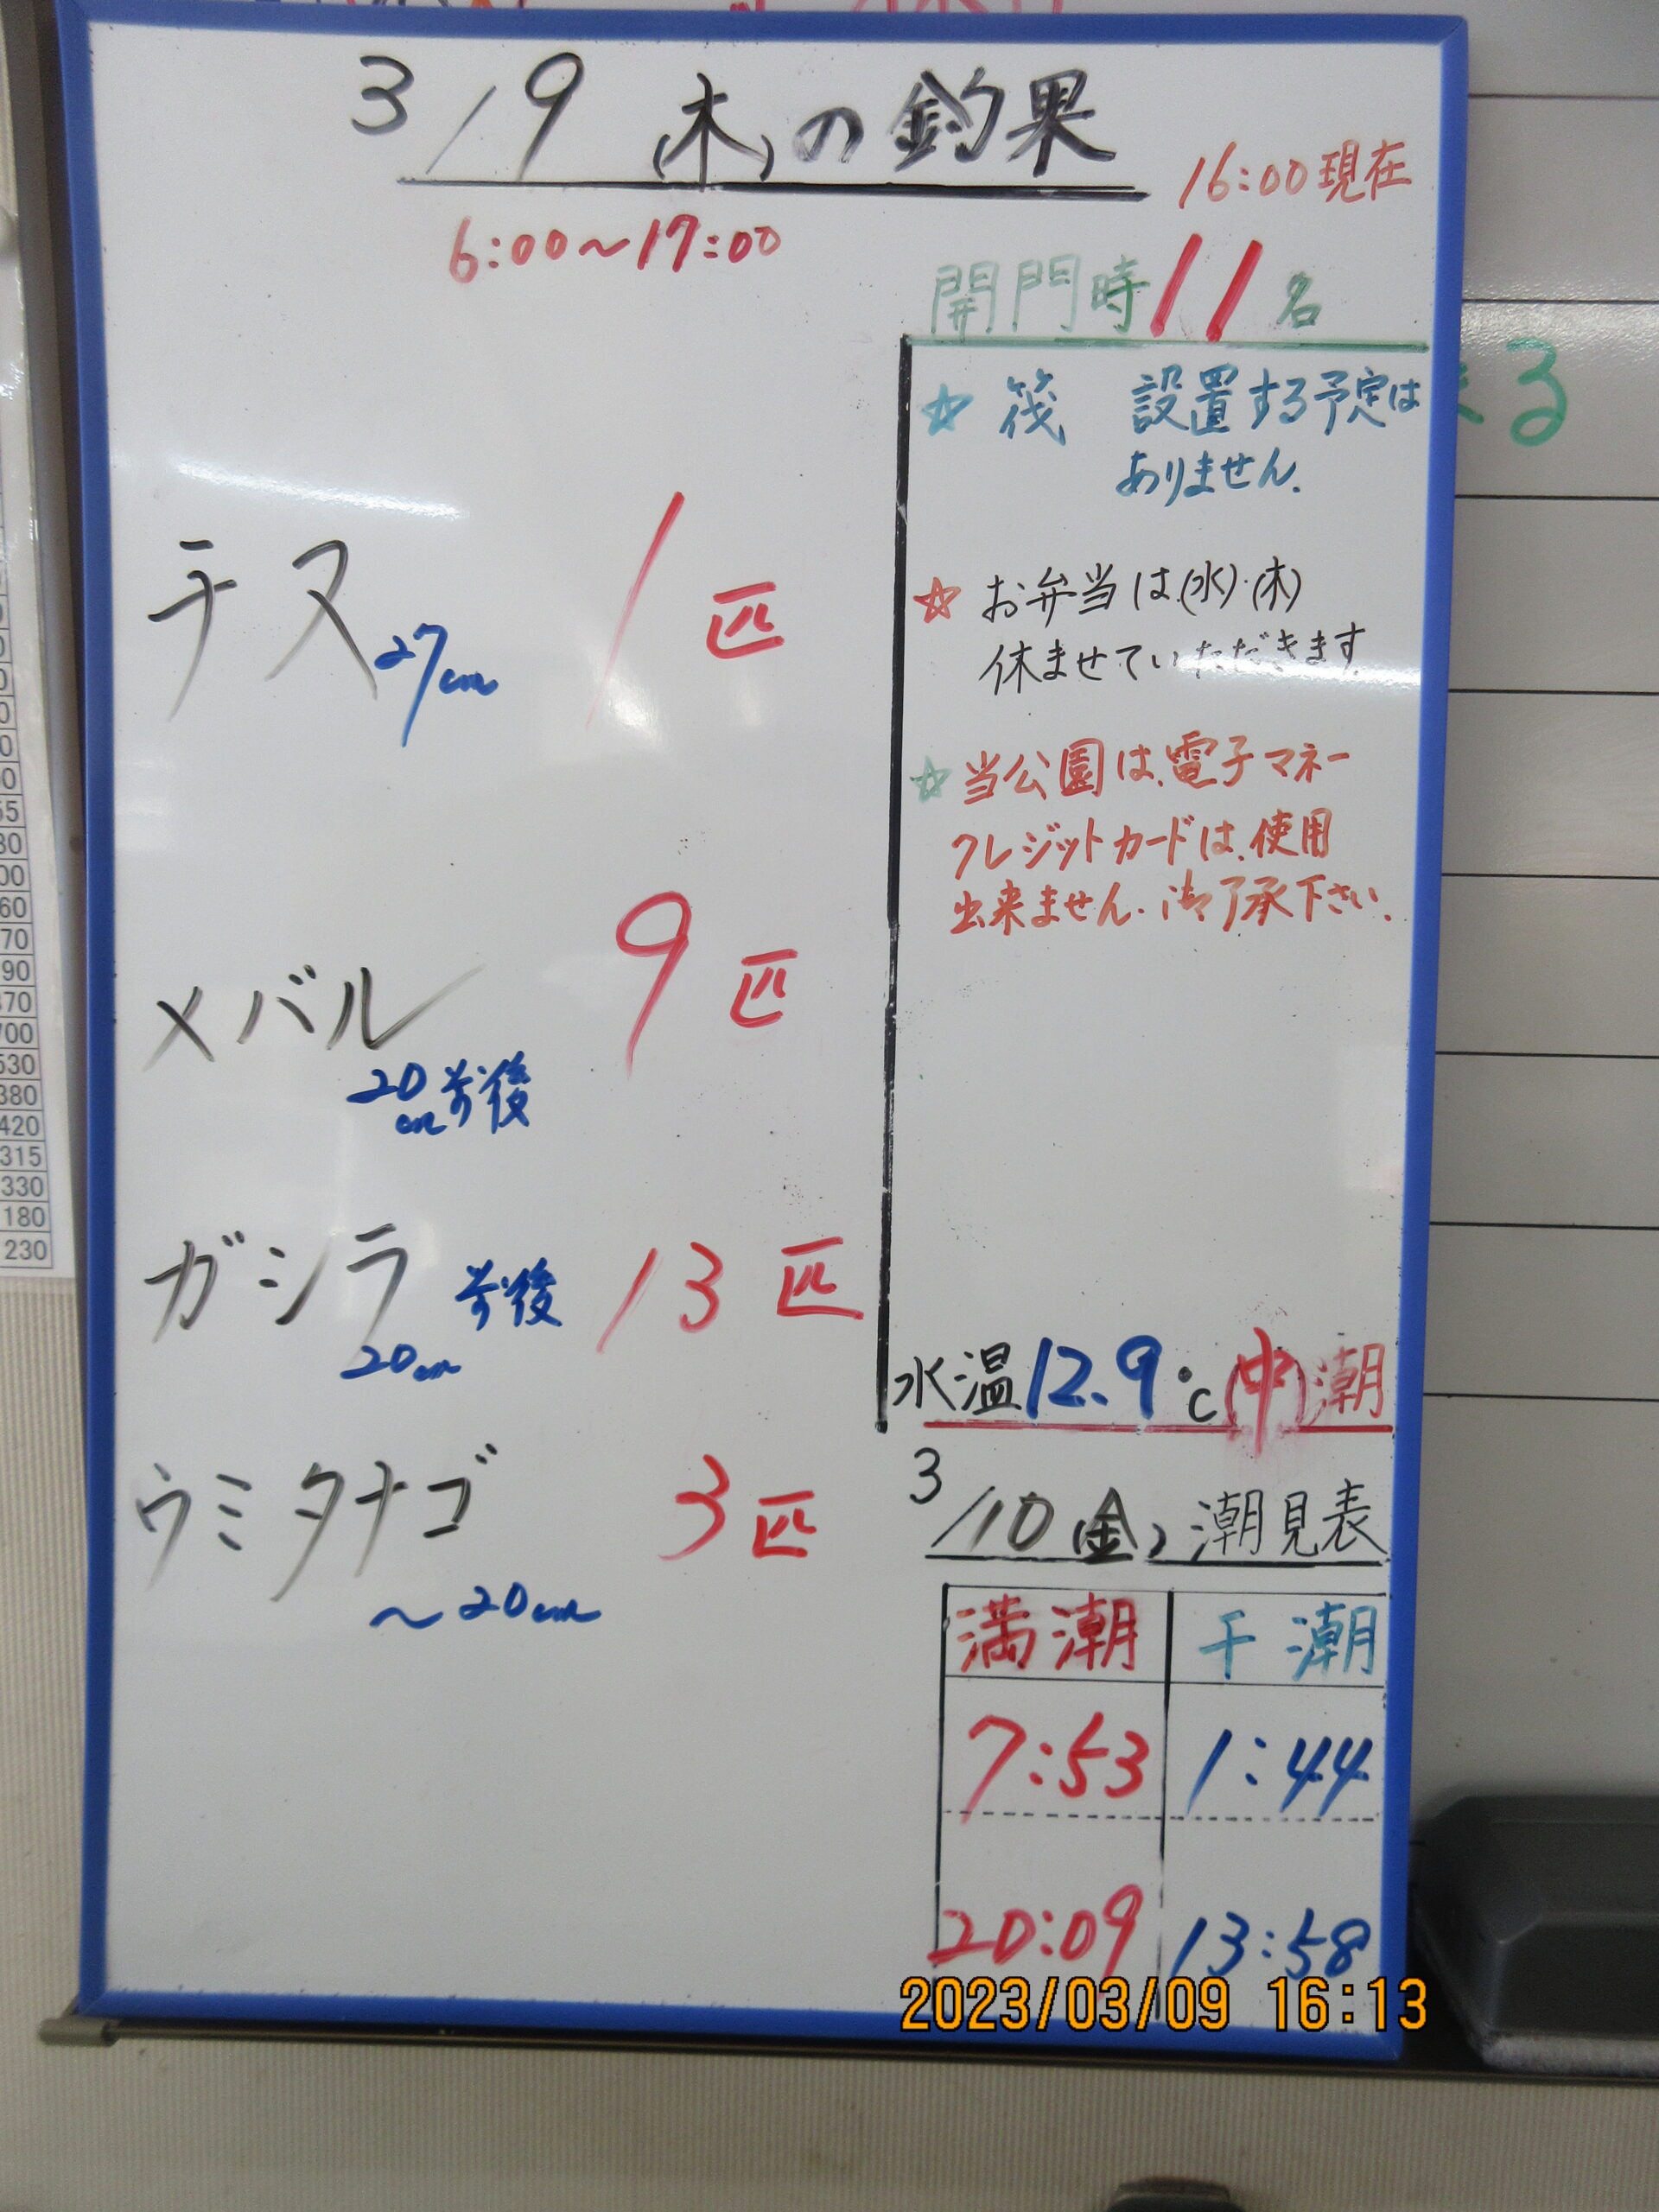 3/9 (木)の釣果
16:00現在
6:00～17:00
開門時11名
☆ 筏 設置する予定は
ありません.
☆ お弁当は(水)・(木)
休ませていただきます
☆ 当公園は、電子マネー
クレジットカードは、使用
出来ません. 御了承下さい.
チヌ 27cm 1匹
メバル 20cm前後 9匹
ガシラ 20cm前後 13匹
ウミタナゴ ～20cm 3匹
水温12.9℃ (中)潮
3/10(金) 潮見表
満潮 干潮
7:53 1:44
20:09 13:58
2023/03/09 16:13
る
55
30
00
60
70
90
370
700
530
380
420
315
330
180
230